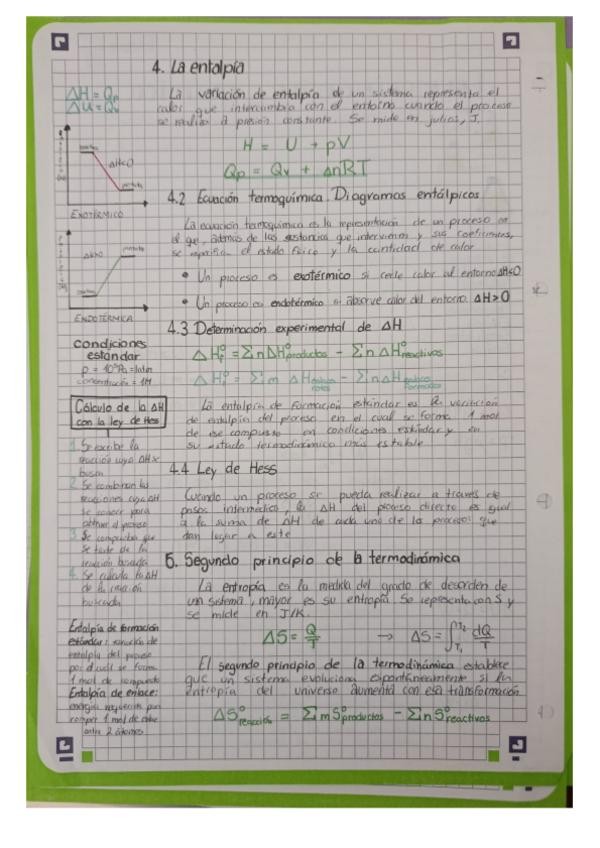 4. La entalpía
ΔH = Qp
ΔU = Qv
La variación de entalpía de un sistema representa el
calor que intercambia con el entorno cuando el proceso
se realiza a presión constante. Se mide en julios, J.
H = U + pV
Qp = Qv + ΔnRT
ΔH<0
EXOTÉRMICO
4.2 Ecuación termoquímica. Diagramas entálpicos
La ecuación termoquímica es la representación de un proceso en
el que, además de las sustancias que intervienen y sus coeficientes,
se especifica el estado físico y la cantidad de calor
• Un proceso es exotérmico si cede calor al entorno ΔH<0
• Un proceso es endotérmico si absorve calor del entorno. ΔH>0
ΔH>0
ENDOTÉRMICA
4.3 Determinación experimental de ΔH
ΔH°r = ΣnΔH°productos − ΣnΔH°reactivos
ΔH°r = Σm ΔHenlaces rotos − ΣnΔHenlaces formados
Condiciones
estándar
p = 10⁵Pa = 1atm
concentración = 1M
La entalpía de formación estándar es la variación
de entalpía del proceso en el cual se forma 1 mol
de ese compuesto en condiciones estándar y en
su estado termodinámico más estable
Cálculo de la ΔH
con la ley de Hess
1. Se escribe la
reacción cuya ΔH se
busca
2. Se combinan las
reacciones cuya ΔH
se conoce para
obtener el proceso
3. Se comprueba que
se trate de la
reacción buscada
4. Se calcula la ΔH
de la reacción
buscada
4.4 Ley de Hess
Cuando un proceso se pueda realizar a través de
pasos intermedios, la ΔH del proceso directo es igual
a la suma de ΔH de cada uno de los procesos que
dan lugar a este
5. Segundo principio de la termodinámica
La entropía es la medida del grado de desorden de
un sistema, mayor es su entropía. Se representa con S y
se mide en J/K.
ΔS = Q/T → ΔS = ∫T₁T₂ dQ/T
El segundo principio de la termodinámica establece
que un sistema evoluciona espontáneamente si la
entropía del universo aumenta con esa transformación
ΔS°reacción = ΣmS°productos − ΣnS°reactivos
Entalpía de formación
estándar: variación de
entalpía del proceso
por el cual se forma
1 mol de compuesto
Entalpía de enlace:
energía requerida para
romper 1 mol de enlace
entre 2 átomos